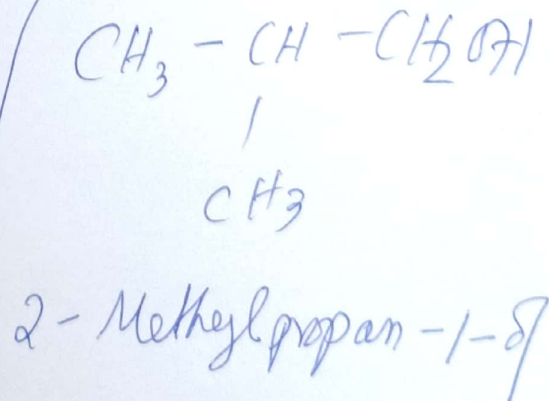 CH3 - CH - CH2OH
|
CH3
2-Methylpropan-1-ol